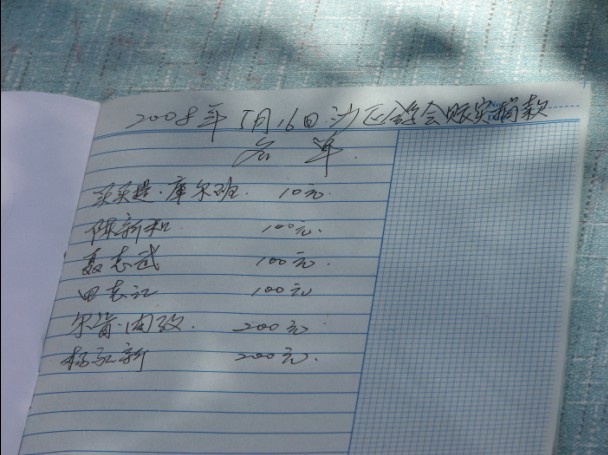 2008年5月16日沙区会学会赈灾捐款
名单
买买提·库尔班 10元
陈新和 100元
聂志武 100元
田志江 100元
200元
杨新 200元